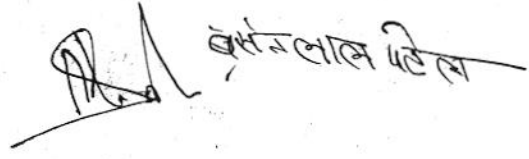 बसंत लाल पटेल